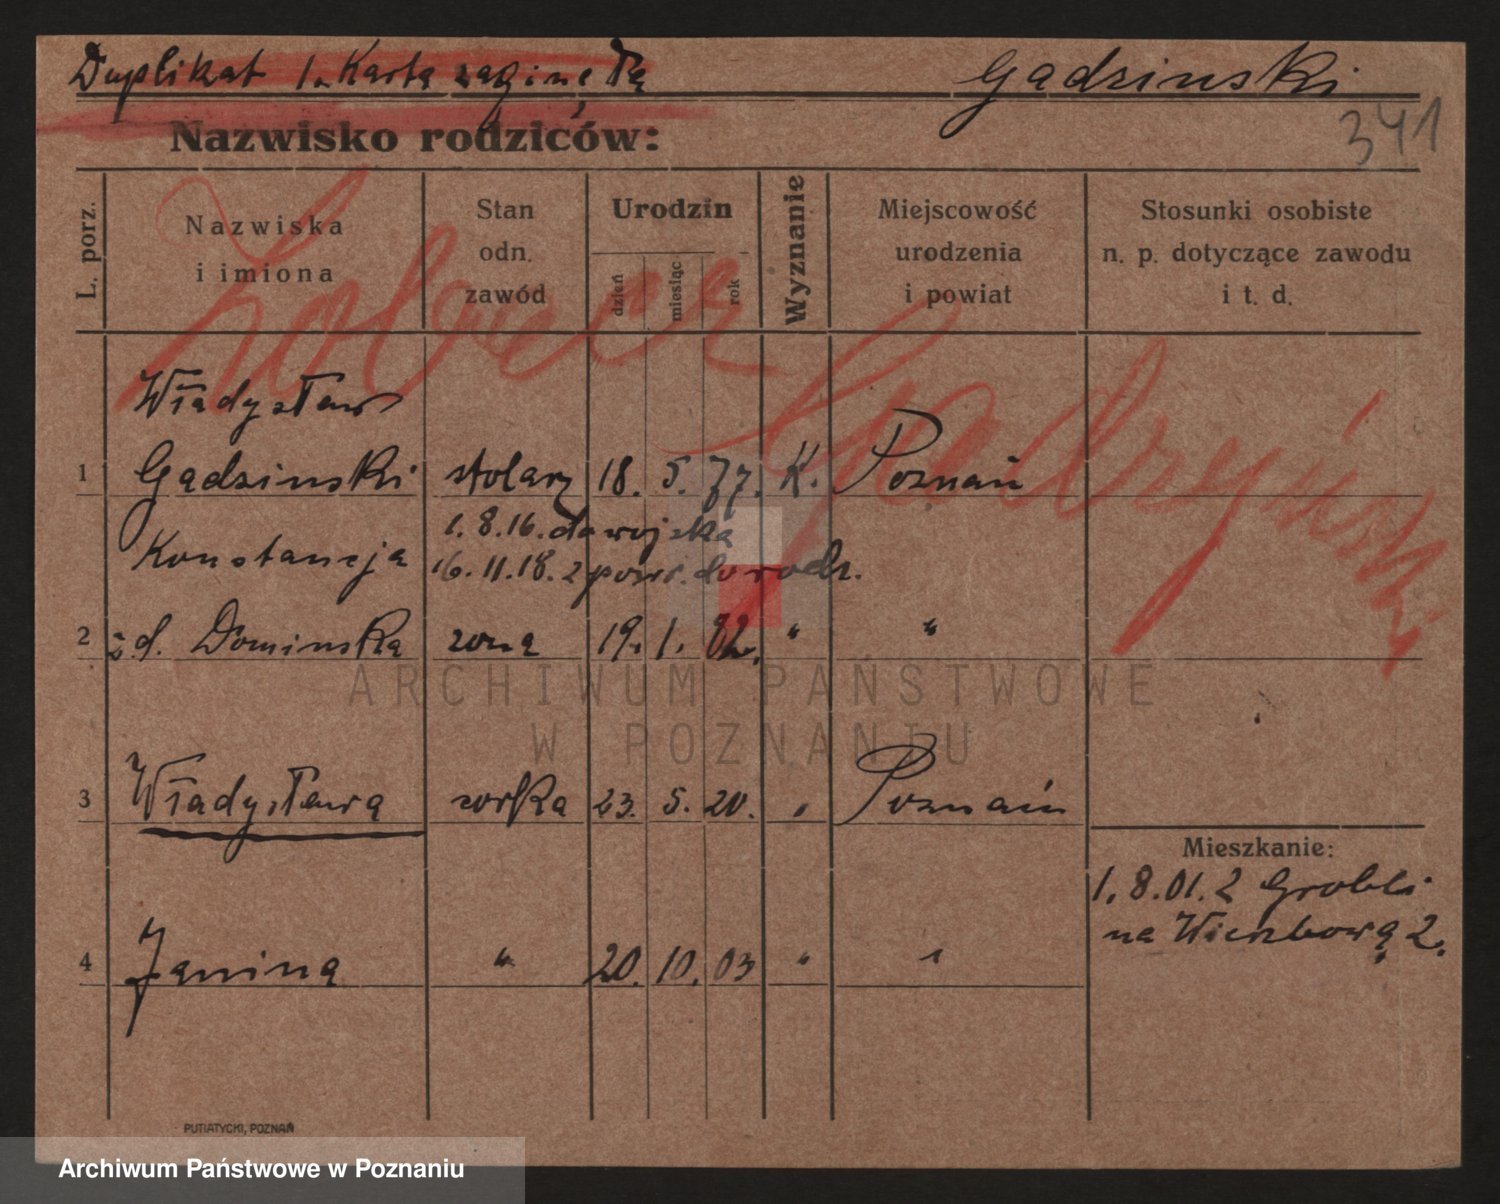 Duplikat 1. Karta zaginęła
Gądzinski
341
Nazwisko rodziców:
L. porz.
Nazwiska
i imiona
Stan
odn.
zawód
Urodzin
dzień
miesiąc
rok
Wyznanie
Miejscowość
urodzenia
i powiat
Stosunki osobiste
n. p. dotyczące zawodu
i t. d.
Zobacz
Gądzyński
Władysław
1 Gądzinski stolarz 18. 5. 77. K. Poznań
1. 8. 16. do wojska
Konstancja
16. 11. 18. z powr. do rodz.
2 z d. Dominska zona 19. 1. 82. " "
3 Władysława corka 23. 5. 20. " Poznań
4 Janina " 20. 10. 03 " "
Mieszkanie:
1. 8. 01. z Grobli
na Wierzbową 2.
PUTIATYCKI, POZNAŃ
ARCHIWUM PAŃSTWOWE
W POZNANIU
Archiwum Państwowe w Poznaniu